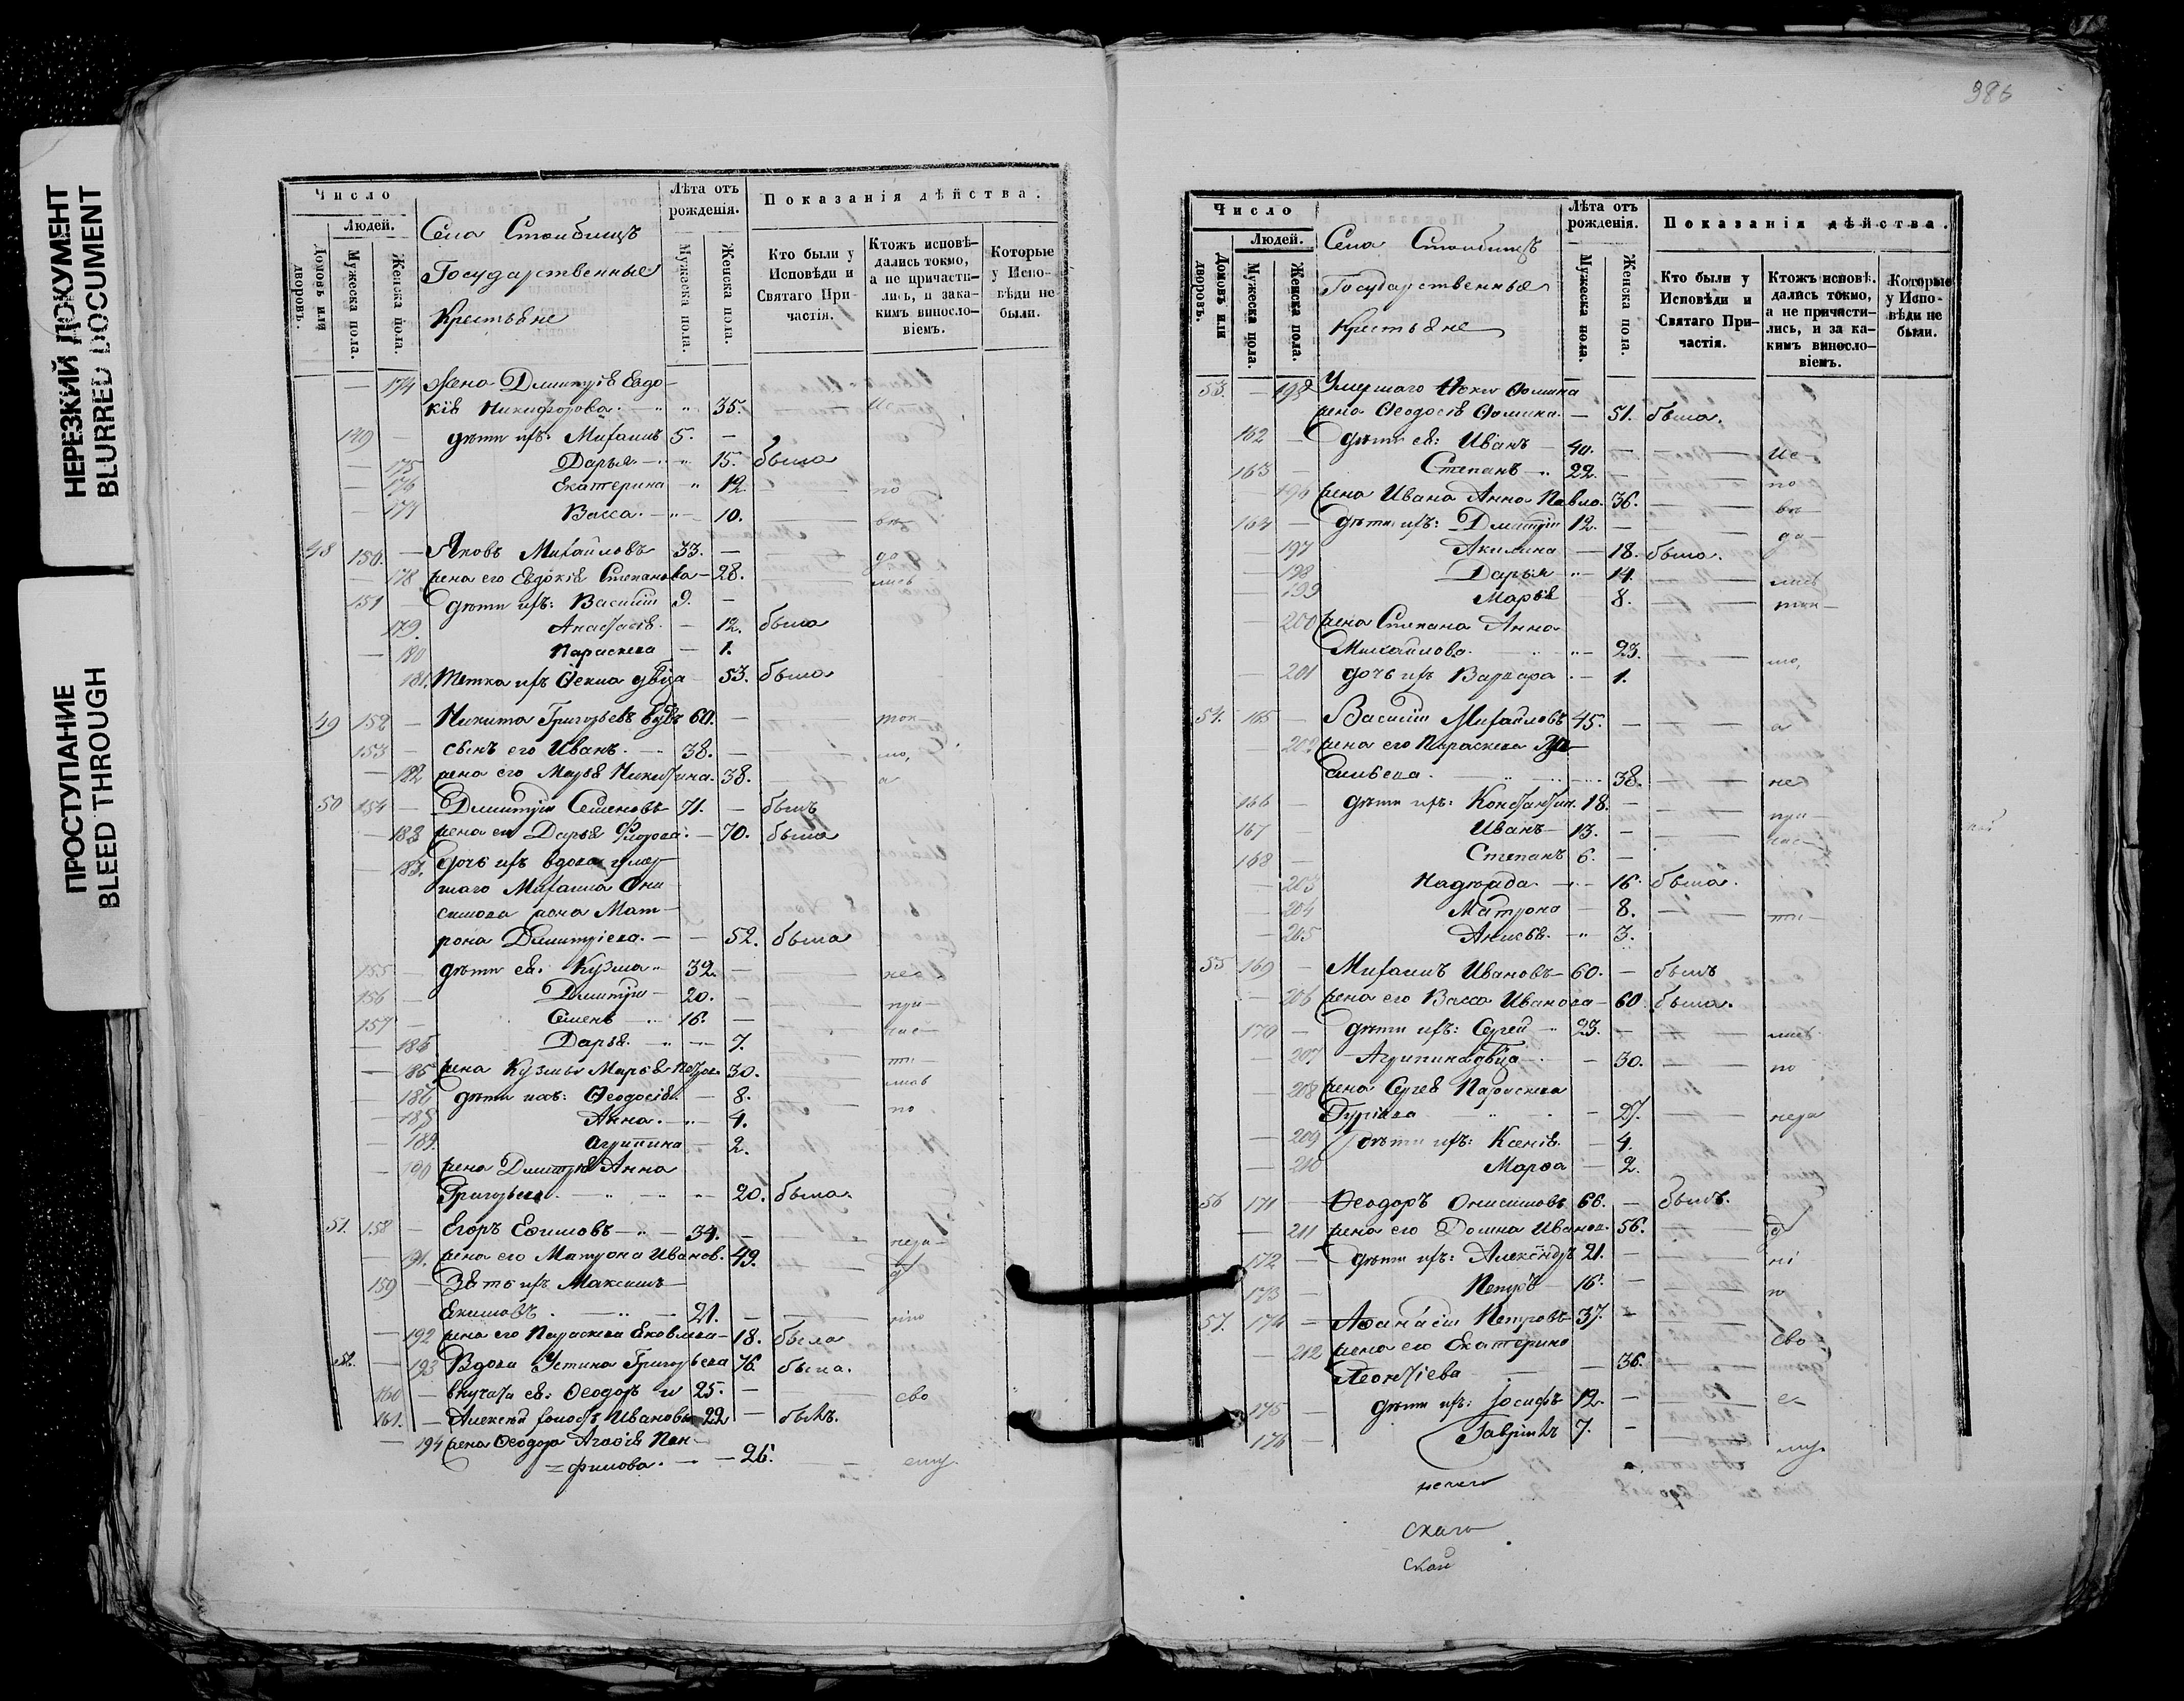 НЕРЕЗКИЙ ДОКУМЕНТ
BLURRED DOCUMENT
ПРОСТУПАНИЕ
BLEED THROUGH
Число
Людей.
Домовъ или дворовъ.
Мужеска пола.
Женска пола.
Села Столбищъ
Государственные
Крестьяне
Лѣта отъ рожденія.
Мужеска пола.
Женска пола.
Показанія дѣйства.
Кто были у Исповѣди и Святаго Причастія.
Ктожъ исповѣдались токмо, а не причастились, и закакимъ винословіемъ.
Которые у Исповѣди не были.
174 жена Димитрія Евдо-
кія Никифорова 35. Ис-
149 дѣти ихъ: Михаилъ 5.
175 Дарья 15. была
176 Екатерина 12. по
177 Васса 10. вѣ
48 150. Яковъ Михайловъ 33. да
178 жена его Евдокія Степанова 28. лись
151 дѣти ихъ: Василій 9.
179. Анастасія 12. была
180 Параскева 1.
181. Тетка ихъ Ѳекла дѣвица 53. была
49 152 Никита Григорьевъ вдвъ 60. ток-
153 сынъ его Иванъ 38. мо,
182 жена его Марья Никитина 38. а
50 154 Димитрій Семеновъ 71. былъ
183 жена его Дарья 70. была
183. дочь ихъ вдова умер-
шаго Михаила Они-
симова жена Мат-
рона Димитріева 52. была
155 дѣти ея: Кузма 32. не
156 Димитрій 20. при-
157 Семенъ 16. час-
185 Дарья 7. ти-
85 жена Кузмы Марья Петров. 30. лись
186 дѣти ихъ: Ѳеодосія 8. по
188 Анна 4.
189. Агрипина 2.
190 жена Димитрія Анна
Григорьева 20. была
51. 158 Егоръ Ефимовъ 34. нера-
191. жена его Матрона Иванов. 49. д
159 Зять ихъ Максимъ
Екимовъ 21.
192 жена его Параскева Яковлева 18. была
52. 193 Вдова Устина Григорьева 76. была.
160 внучата ея: Ѳеодоръ и 25. сво
161. Алексѣй холостъ Ивановы 22 былъ.
194 жена Ѳеодора Агафія Пан-
=филова. 26. ему
386
Число
Людей.
Домовъ или дворовъ.
Мужеска пола.
Женска пола.
Села Столбищъ
Государственные
Крестьяне
Лѣта отъ рожденія.
Мужеска пола.
Женска пола.
Показанія дѣйства.
Кто были у Исповѣди и Святаго Причастія.
Ктожъ исповѣдались токмо, а не причастились, и за какимъ винословіемъ.
Которые у Исповѣди не были.
53. 195 Умершаго Ѳомина
жена Ѳеодосія Ѳомина 51. была.
162 дѣти ея: Иванъ 40. Ис-
163 Степанъ 22. по
196 жена Ивана Анна Павло. 36. вѣ
164 дѣти ихъ: Димитрій 12. да-
197 Акилина 18. была.
198 Дарья 14. лись
199 Марья 8. ток-
200 жена Степана Анна
Михайлова 23. мо,
201 дочь ихъ Варвара 1.
54. 165 Василій Михайловъ 45. а
202 жена его Параскева Ва-
сильева 38. не
166 дѣти ихъ: Константин. 18. при-
167 Иванъ 13. час-
168 Степанъ 6.
203 Надежда 16. была.
204 Матрона 8. ти-
205 Анисья 3.
55 169 Михаилъ Ивановъ 60. былъ
206 жена его Васса Иванова 60 была.
170 дѣти ихъ: Сергей 23. лись
207 Агрипина дѣвица 30. по
208 жена Сергея Параскева
Гурьева 27. нера
209 дѣти ихъ: Ксенія 4.
210 Марѳа 2.
56 171 Ѳеодоръ Онисимовъ 66. былъ.
211 жена его Домна Иванов. 56. д
172 дѣти ихъ: Александръ 21. ні
173 Петръ 16. ю
57. 174 Аѳанасій Петровъ 37.
212 жена его Екатерина сво
Леонтіева 36.
175 дѣти ихъ: Іосифъ 12. е-
176 Гавріилъ 7. му.
скаго
ской